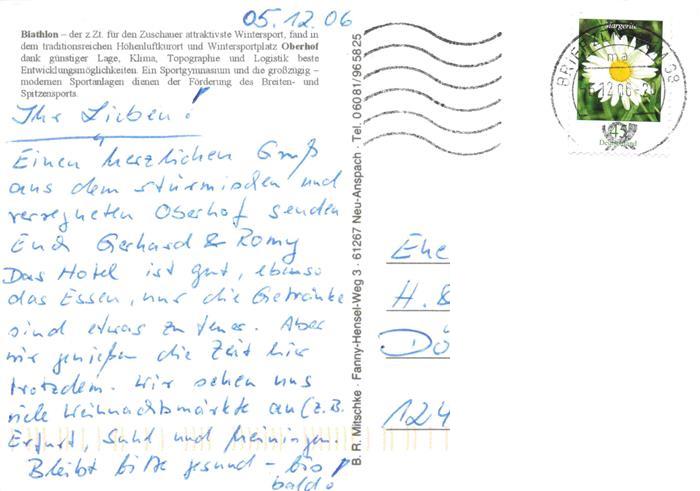 05.12.06
Biathlon – der z.Zt. für den Zuschauer attraktivste Wintersport, fand in
dem traditionsreichen Höhenluftkurort und Wintersportplatz Oberhof
dank günstiger Lage, Klima, Topographie und Logistik beste
Entwicklungsmöglichkeiten. Ein Sportgymnasium und die großzügig –
modernen Sportanlagen dienen der Förderung des Breiten- und
Spitzensports.
Ihr Lieben!
Einen herzlichen Gruß
aus dem stürmischen und
verregneten Oberhof senden
Euch Gerhard & Romy
Das Hotel ist gut, ebenso
das Essen, nur die Getränke
sind etwas zu teuer. Aber
wir genießen die Zeit hier
trotzdem. Wir sehen uns
viele Weihnachtsmärkte an (z.B.
Erfurt, Suhl und Meiningen.
Bleibt bitte gesund – bis
bald!
B. R. Mitschke · Fanny-Hensel-Weg 3 · 61267 Neu-Anspach · Tel. 06081/965825
Margerite
45
Deutschland
BRIEF
12.06
Ehe
H. &
Dö
124